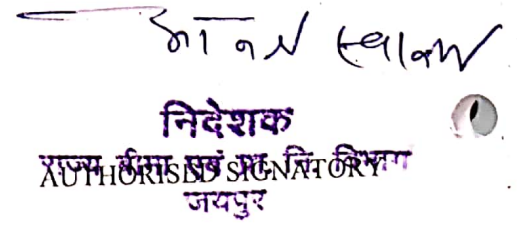 निदेशक
राज्य बीमा एवं प्रा. नि. विभाग
AUTHORISED SIGNATORY
जयपुर